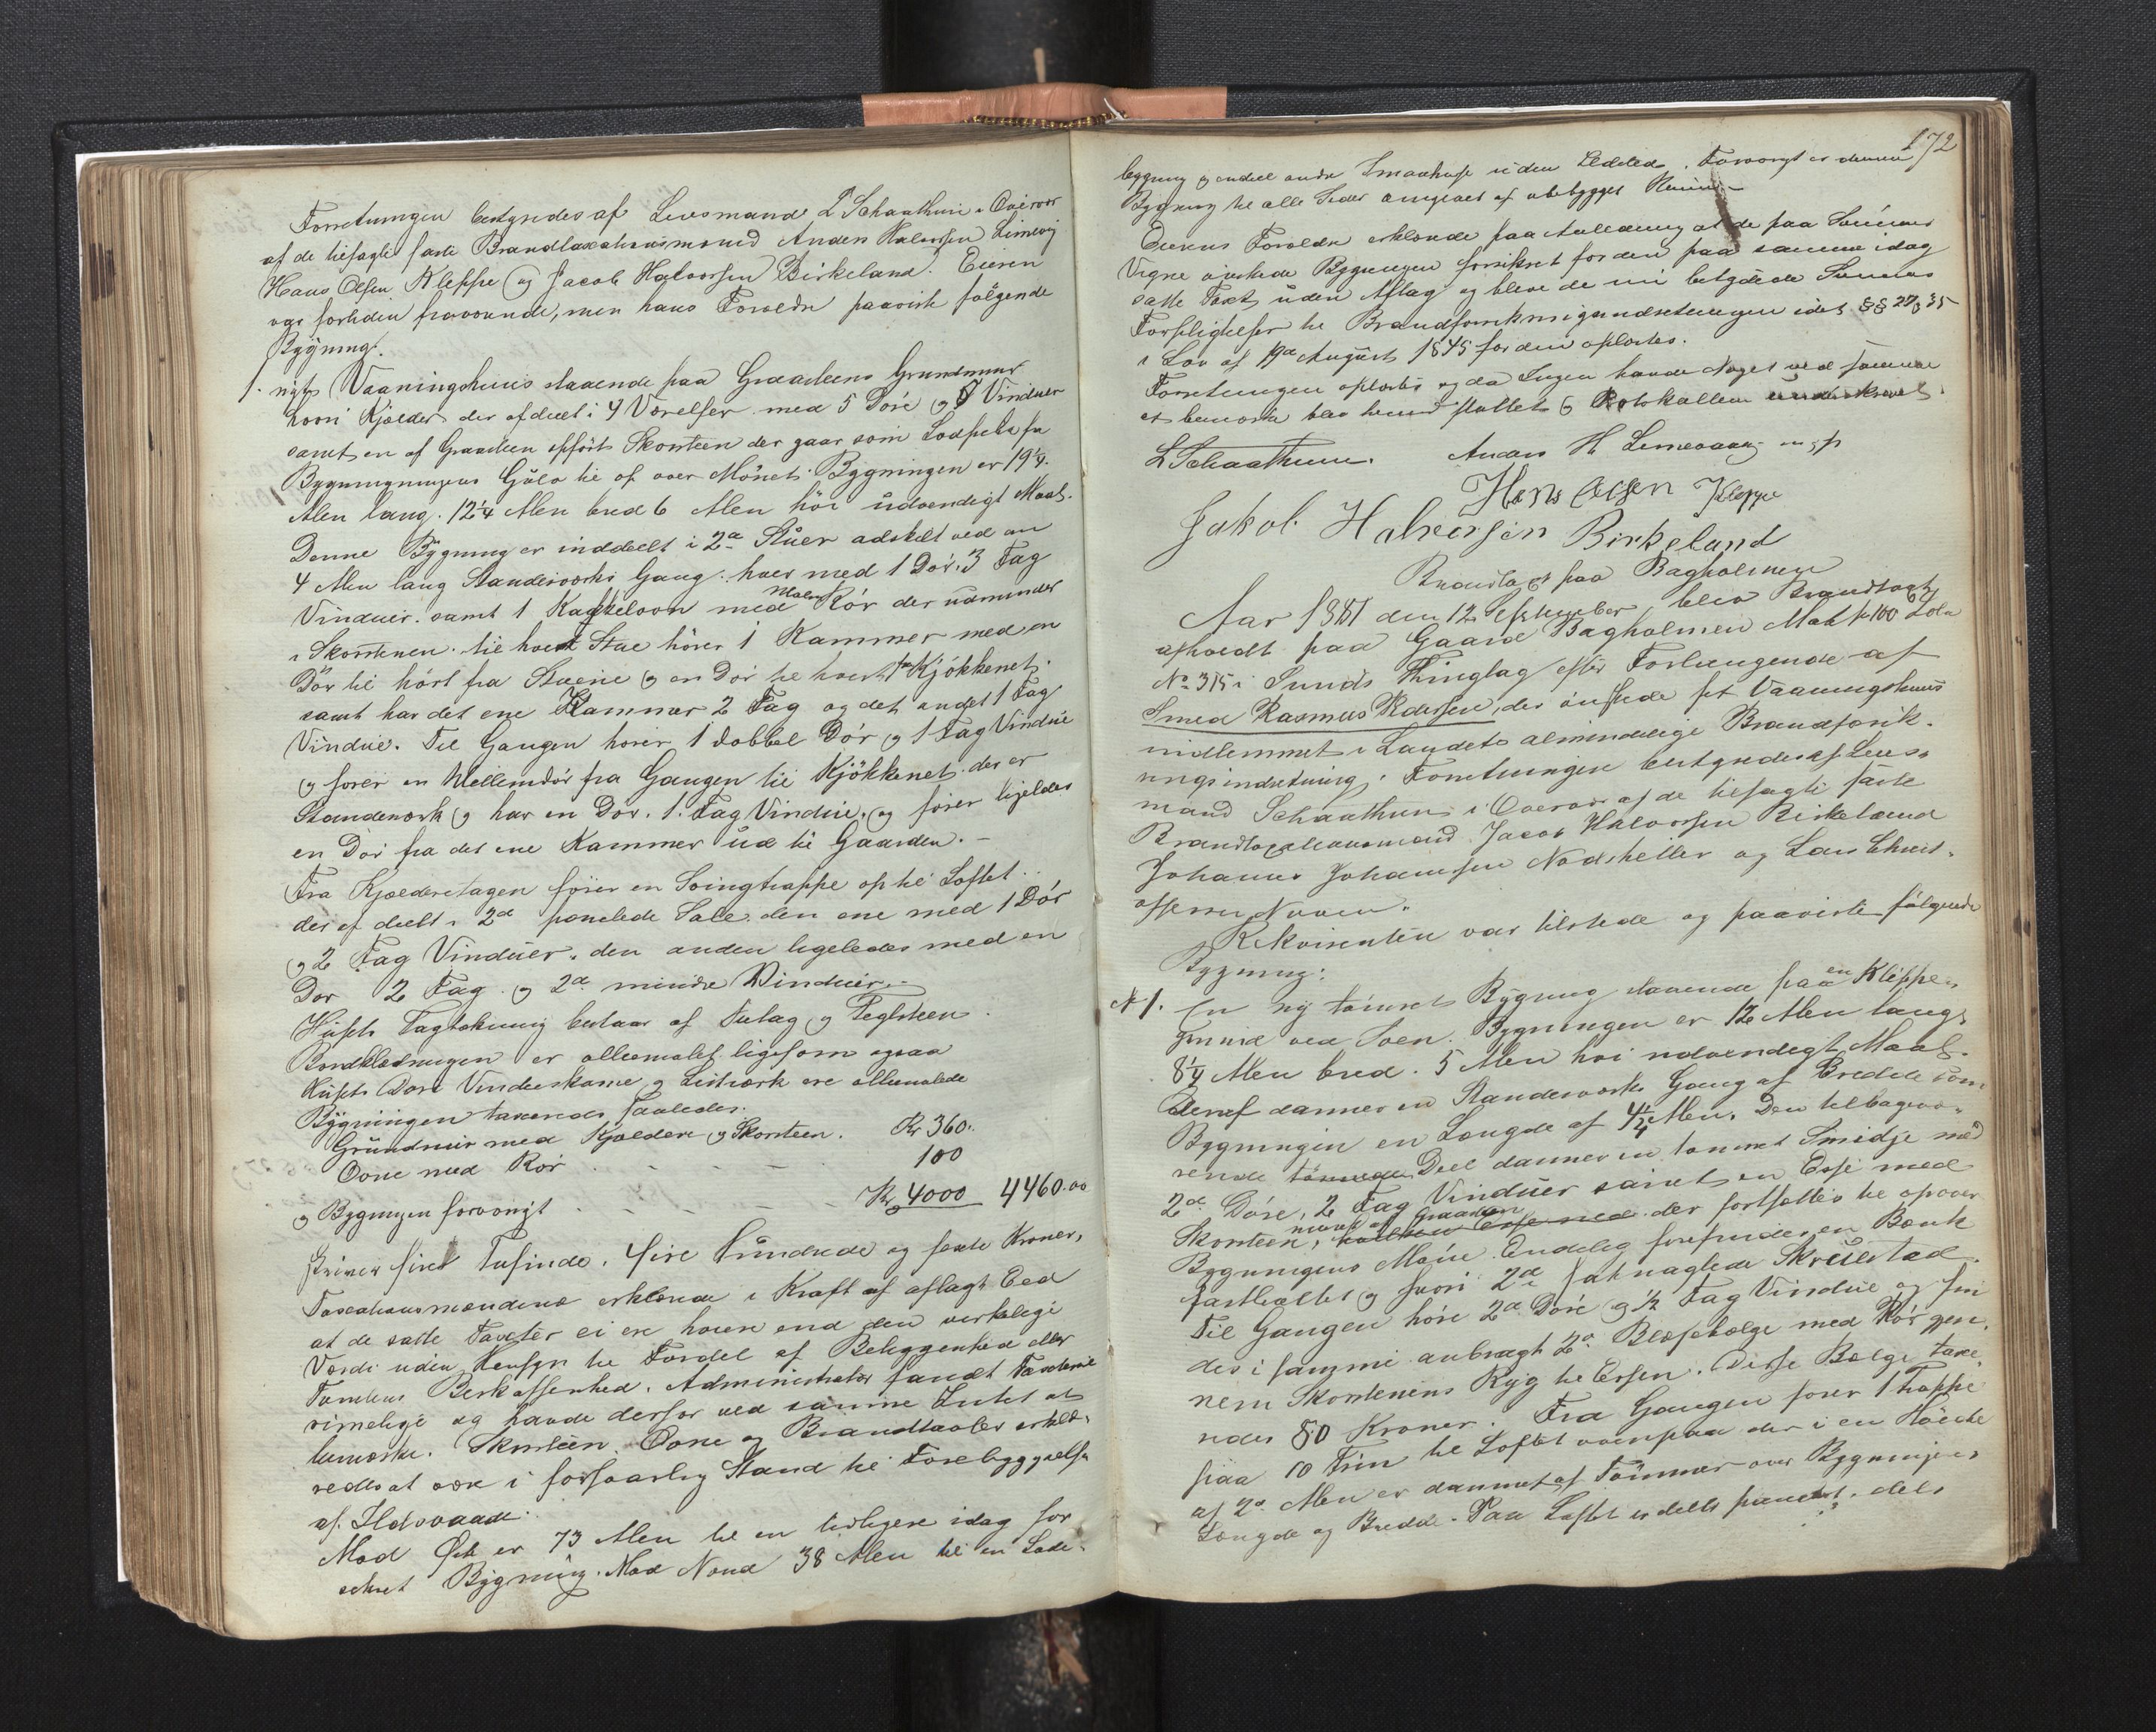 Forretningen bestyredes af Lensmand L Schaathun i Overvær
af de tilsagte faste Brandtaxationsmænd Anders Halvorsen Limevig
Hans Olsen Kleppe og Jacob Halvorsen Birkeland. Eieren
var fortiden fraværende, men hans Forældre paaviste følgende
Bygning.
1. nyt Vaaningshuus staaende paa Graasteens Grundmuur
hvori Kjelder der afdeelt i 4 Værelser med 5 Døre og 8 Vinduer
samt en af Graasteen opført Skorsteen der gaar som Lodpibe fra
Bygningningens Gulv til op over Mønet. Bygningen er 19¼
Alen lang. 12¼ Alen bred 6 Alen høi udvendigt Maal.
Denne Bygning er inddeelt i 2de Stuer adskilt ved en
4 Alen lang Standerværks Gang. hver med 1 Dør. 3 Fag
Vinduer. samt 1 Kakkelovn med Malm Rør der udmunder
i Skorstenen. til hver Stue hører 1 Kammer med en
Dør til hørt fra Stuene og en Dør til hvert fra Kjøkkenet.
samt har det ene Kammer 2 Fag og det andet 1 Fag
Vindue. Til Gangen hører 1 dobbel Dør og 1 Fag Vindue
og fører en Mellemdør fra Gangen til Kjøkkenet. der er
Standerværk og har en Dør. 1. Fag Vindue. og fører ligeledes
en Dør fra det ene Kammer ud til Gaarden. –
Fra Kjælderetagen fører en Svingtrappe op til Loftet.
der er deelt i 2de panelede Sale. den ene med 1 Dør
og 2 Fag Vinduer. den anden ligeledes med en
Dør 2 Fag. og 2de mindre Vinduer. –
Husets Tagtækning bestaar af Tutag og Teglsteen.
Bordklædningen er olliemalet ligesom ogsaa
Husets Døre Vindueskarme og Listværk ere olliemalede
Bygningen taxeredes saaledes:
Grundmur med Kjælder og Skorsteen. Kr 360.
Ovne med Rør . - - - 100
og Bygningen forøvrigt . - - - Kr 4000 4460.00
skriver fire Tusinde, fire Hundrede og sexti Kroner,
Taxationsmændene erklærede i Kraft af aflagt Eed
at de satte Taxter ei ere høiere end den virkelige
Værdi uden Hensyn til Fordel af Beliggenhed eller
Tomtens Beskaffenhed. Administrator fandt Taxterne
rimelige og havde derfor ved samme Intet at
bemærke. Skorsteen. Ovne og Brandtavler erklæ-
redes at være i forsvarlig Stand til Forebyggelse
af Ildsvaade.
Mod Øst er 73 Alen til en tidligere idag for
sikret Bygning. Mod Nord 38 Alen til en Lade-
172
bygning og endeel andre Smaahuse uden Ildsted. Forøvrigt er denne
Bygning til alle Sider omgivet af ubebygget
Eierens Forældre erklærede paa Anledning at de paa Sønnens
Vegne ønskede Bygningen forsikret for den paa samme idag
satte Taxt uden Aflag og bleve de nu betydede Sønnens
Forpligtelser til Brandforsikringsindretningen idet §§ 27 & 35
i Lov af 19de August 1845 for dem oplæstes.
Forretningen oplæstes og da Ingen havde Noget ved samme
at bemærke blev den sluttet og Protokollen underskrevet.
L Schaathun. Anders H Limevaag m. p
Hans Olsen Kleppe
Jakob Halversen Birkeland
Brandtaxt paa Bagholmen
Aar 1881 den 12 September blev Brandtaxt
afholdt paa Gaard Bagholmen Mat № 100 Løbe
№ 315 i Sunds Thinglag efter Forlangende af
Smed Rasmus Pedersen, der ønskede sit Vaaningshuus
indlemmet i Landets almindelige Brandforsik-
ringsindretning. Forretningen bestyredes af Lens-
mand Schaathun i Overvær af de tilsagte faste
Brandtaxationsmænd Jacob Halvorsen Birkeland
Johannes Johannesen Nodsheller og Lars Christ-
offersen
Rekvirenten var tilstede og paaviste følgende
Bygning:
№ 1. En ny tømret Bygning staaende paa en Kleppe-
grund ved Søen. Bygningen er 12 Alen lang.
8¼ Alen bred. 5 Alen høi udvendigt Maal.
Deraf danner en Standerværks Gang af Bredde som
Bygningen en Længde af 4¼ Alen. Den tilbagevæ-
rende tømrede Deel danner en tømret Smidje med
2de Døre, 2 Fag Vinduer samt en Esse med
Skorsteen, muret af Graasteen der fortsættes til op over
Bygningens Møne. Endelig forefindes en Bænk
fastboltet og hvori 2de fastnaglede Skruestæd.
Til Gangen høre 2de Døre og ½ Fag Vindue, og fin
des i samme anbragt 2de Blæsebælge med Rør gjen-
nem Skorstenens Ryg til Essen. Disse Bælge taxe-
redes 80 Kroner. Fra Gangen fører 1 Trappe
paa 10 Trin til Loftet ovenpaa der i en Høide
af 2de Alen er dannet af Tømmer over Bygningens
Længde og Bredde. Paa Loftet er dels panelet. dels